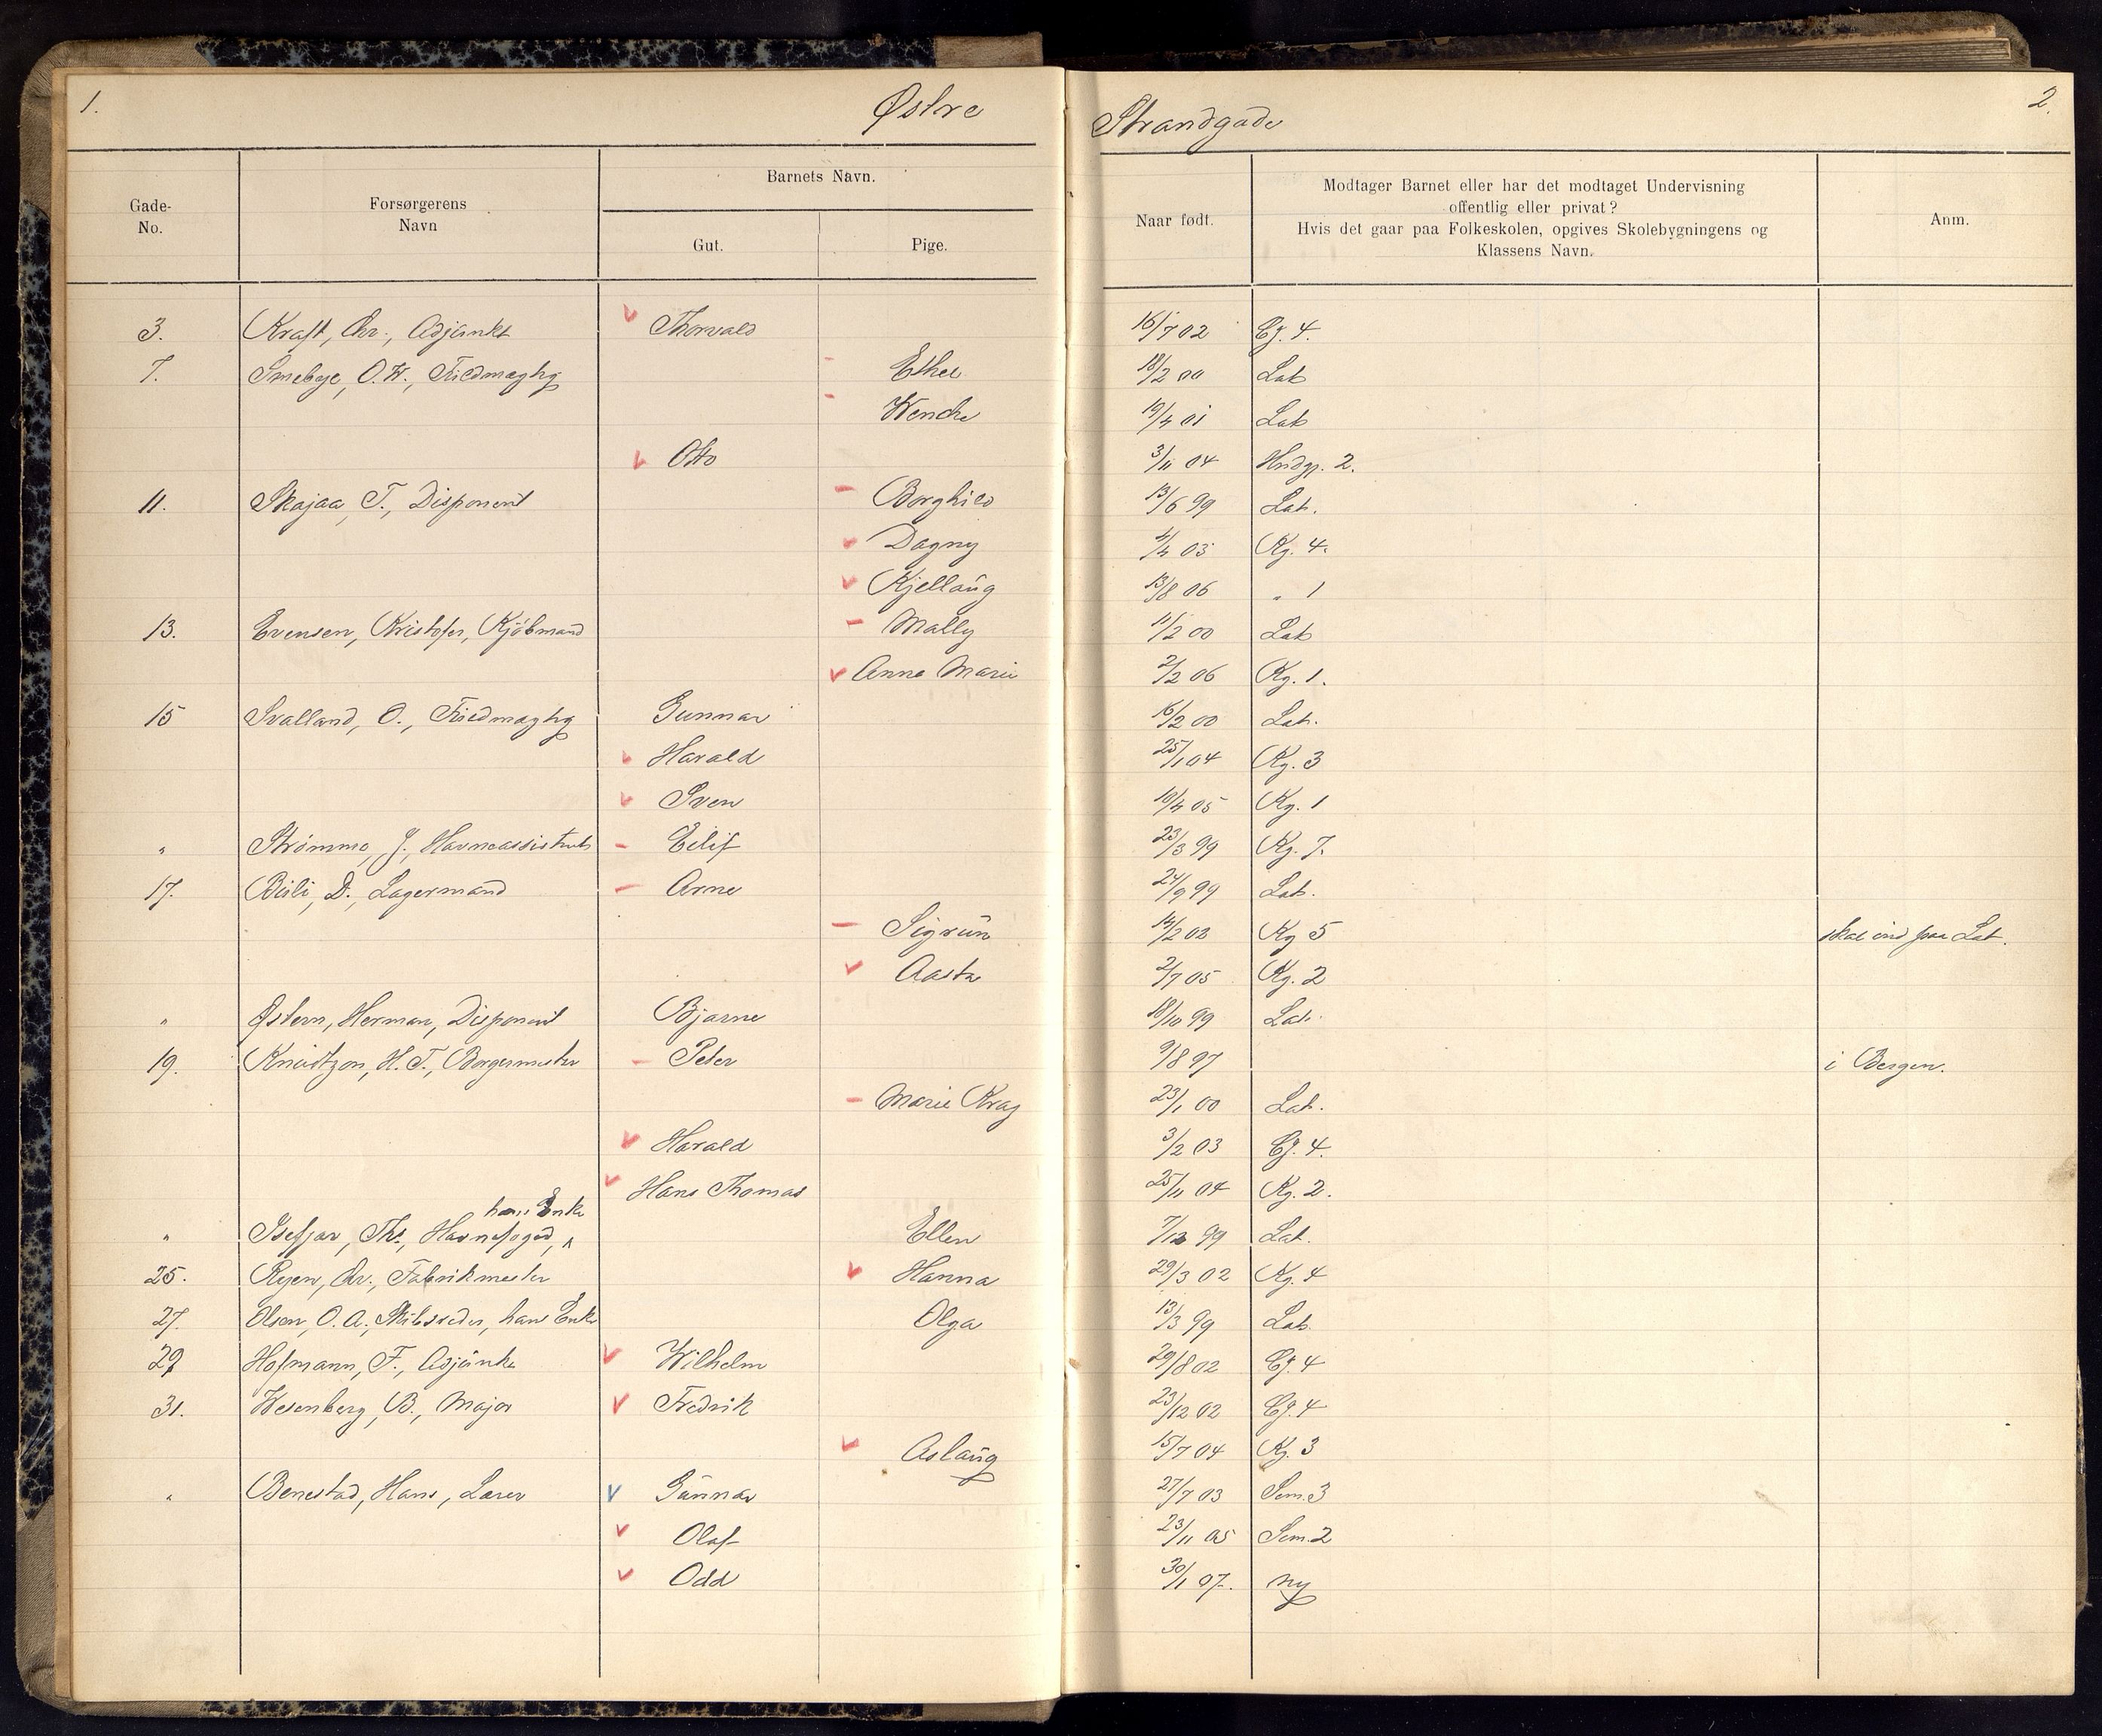 1.
Østre
Strandgade
2.
Gade-
No.
Forsørgerens
Navn
Barnets Navn.
Gut.
Pige.
Naar født.
Modtager Barnet eller har det modtaget Undervisning
offentlig eller privat?
Hvis det gaar paa Folkeskolen, opgives Skolebygningens og
Klassens Navn.
Anm.
3. Kraft, Chr., Adjunkt Thorvald 16/7 02 Cj. 4.
7. Smebye, O.W., Trædmægtig Ethel 18/2 00 Lat
Wenche 19/4 01 Lat
Otto 3/11 04 Hndgr. 2.
11. Skajaa, T., Disponent Borghild 13/6 99 Lat.
Dagny 4/4 03 Kg. 4.
Kjellaug 13/8 06 " 1
13. Evensen, Kristofer, Kjöbmand Mally 11/2 00 Lat
Anna Marie 2/2 06 Kg. 1.
15 Svalland, O., Gunnar 16/2 00 Lat.
Harald 25/1 04 Kg. 3
Sven 19/4 05 Kg. 1
" Strømme, J., Havneassistent Eilif 23/3 99 Kg. 7.
17. D., Lagermand Arne 24/9 99 Lat.
Sigrun 14/2 02 Kg 5 skal ind paa Lat.
Aasta 2/7 05 Kg. 2
" Østern, Herman, Disponent Bjarne 18/10 99 Lat.
19. Knudtzon, H.T., Borgermester Peter 9/8 97 i Bergen.
Marie Krag 23/1 00 Lat.
Harald 3/2 03 Cj. 4.
Hans Thomas 25/11 04 Kg. 2.
hans Enke
" Isefjær, Ths., Havnefoged, Ellen 7/12 99 Lat.
25. Ryen, Chr., Fabrikmester Hanna 29/3 02 Kg. 4
27. Olsen, O.A., Skibsreder, hans Enke Olga 13/3 99 Lat.
29 Hofmann, F., Adjunkt Wilhelm 29/8 02 Cj. 4
31. Wesenberg, B., Major Fredrik 23/12 02 Cj. 4
Aslaug 15/7 04 Kg. 3
" Benestad, Hans, Lærer Gunnar 27/7 03 Sem. 3
Olaf 23/11 05 Sem. 2
Odd 30/1 07. ny